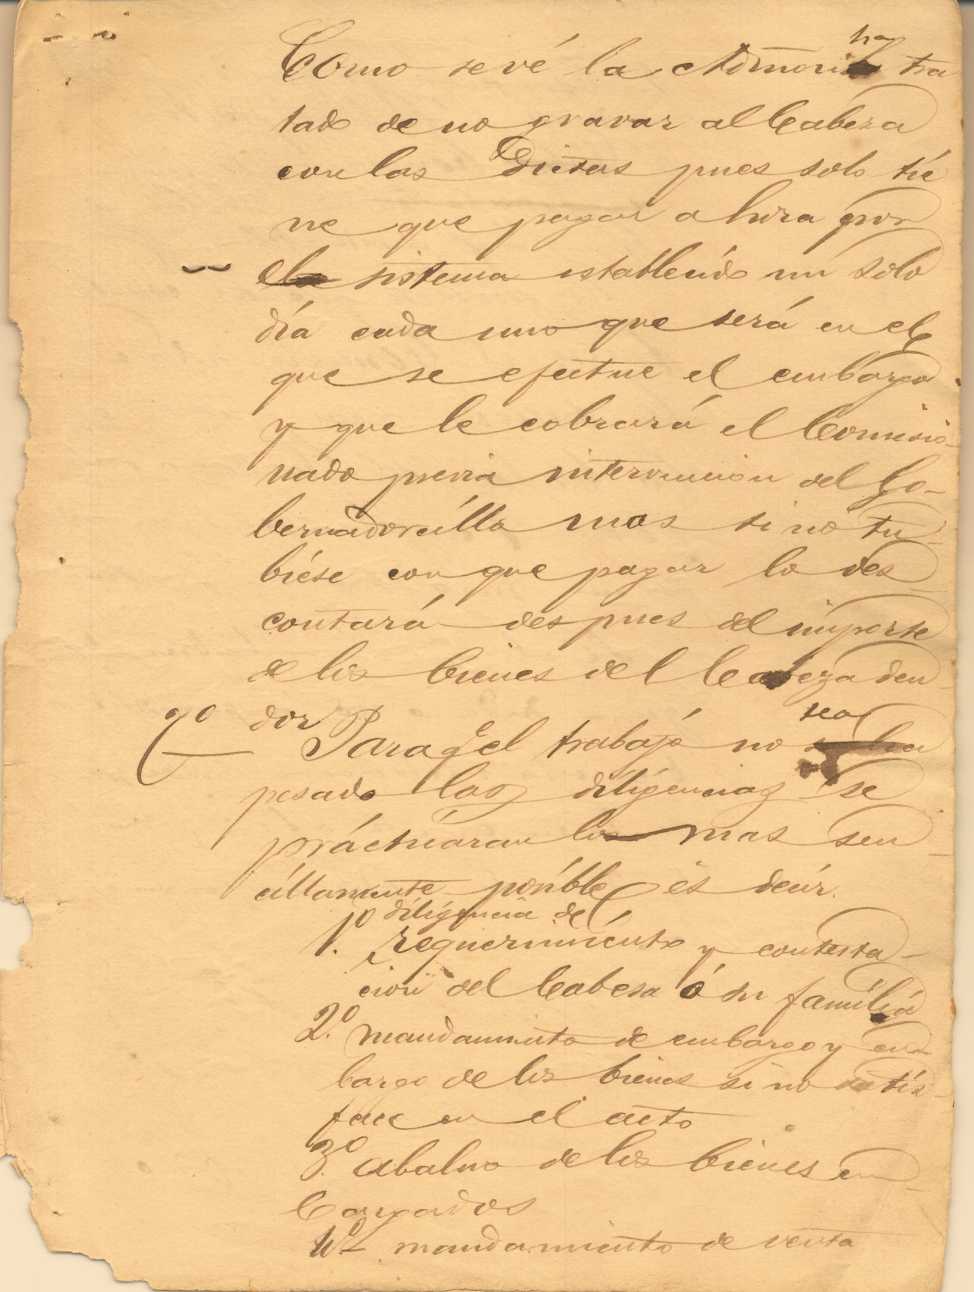 Como se vé la Admon ha tra
tado de no gravar al Cabeza
con las Dietas pues solo tie
ne que pagar ahora por
el sistema establecido un solo
día cada uno que será en el
que se efectue el embargo
y que le cobrará el Comisio
nado previa intervencion del Go-
bernadorcillo mas si no tu-
biése con que pagar lo des
contará despues del importe
de los bienes del Cabeza deu
dor
7º Para q.e el trabajo no sea
pesado las diligencias se
prácticaran lo mas sen
cillamente posible és decir.
1º diligencia de
requerimiénto y contesta-
cion del Cabesa ó su família
2º mandamiento de embargo y em-
bargo de los bienes si no satis-
face en el acto
3º abaluo de los bienes em-
bargados
4º mandamiento de venta